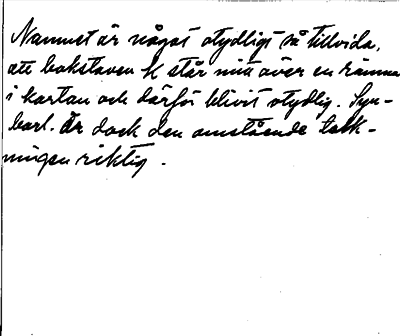 Namnet är något otydligt så tillvida,
att bokstaven k står mitt över en ränna
i kartan och därför blivit otydlig. Syn-
barl. är dock den omstående teck-
ningen riktig.